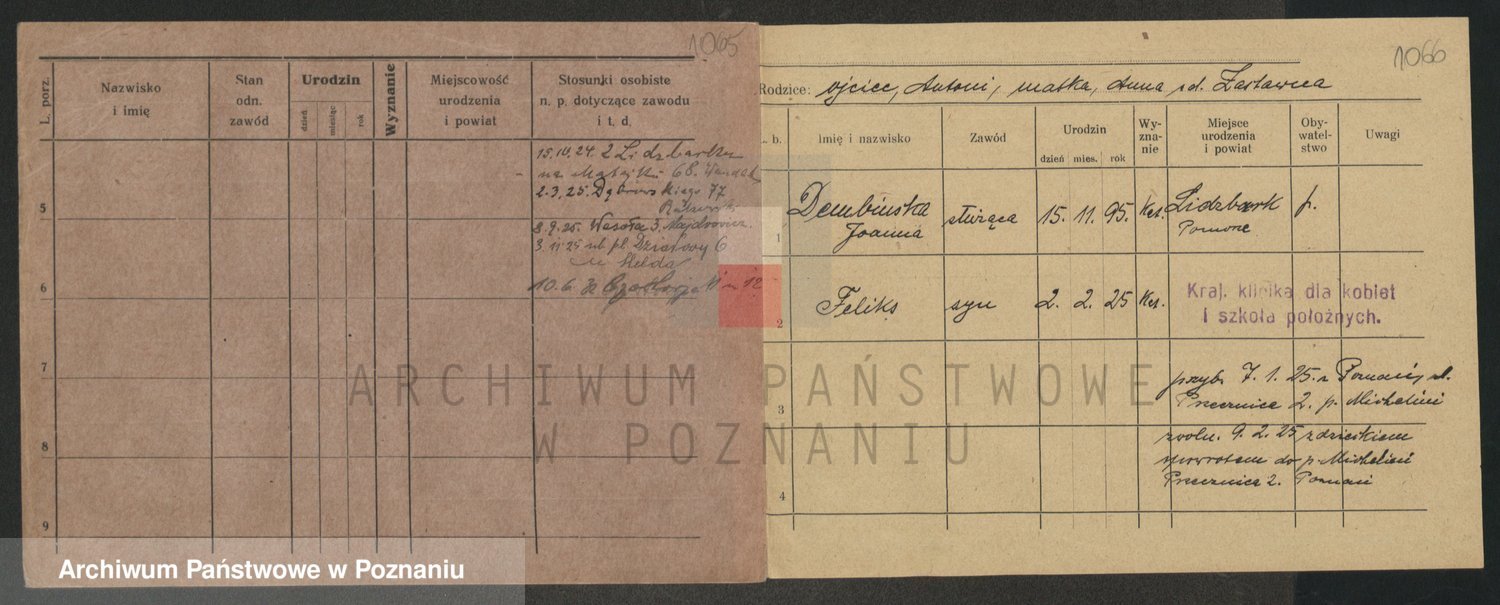 1065
L. porz.
Nazwisko
i imię
Stan
odn.
zawód
Urodzin
dzień
miesiąc
rok
Wyznanie
Miejscowość
urodzenia
i powiat
Stosunki osobiste
n. p. dotyczące zawodu
i t. d.
15.10.24. z Lidzbarku
2.3.25. Dąbrowskiego 77
8.9.25. Wesoła 3.
3.11.25 pl. Działowy 6
10.6.
5
6
7
8
9
1066
Rodzice: ojciec, Antoni, matka, Anna zd. Zastawna
L. b.
Imię i nazwisko
Zawód
Urodzin
dzień mies. rok
Wy-
zna-
nie
Miejsce
urodzenia
i powiat
Oby-
watel-
stwo
Uwagi
1
Dembińska
Joanna
służąca
15. 11. 95.
Kat.
Lidzbark
Pomorze
p.
2
Feliks
syn
2. 2. 25
Kat.
Kraj. klinika dla kobiet
i szkoła położnych.
3
przyb. 7.1.25. z Poznań, ul.
Przecznica 2. p. Michelini
zwoln. 9.2.25 z dzieckiem
spowrotem do p. Michelini
Przecznica 2. Poznań
4
ARCHIWUM PAŃSTWOWE
W POZNANIU
Archiwum Państwowe w Poznaniu